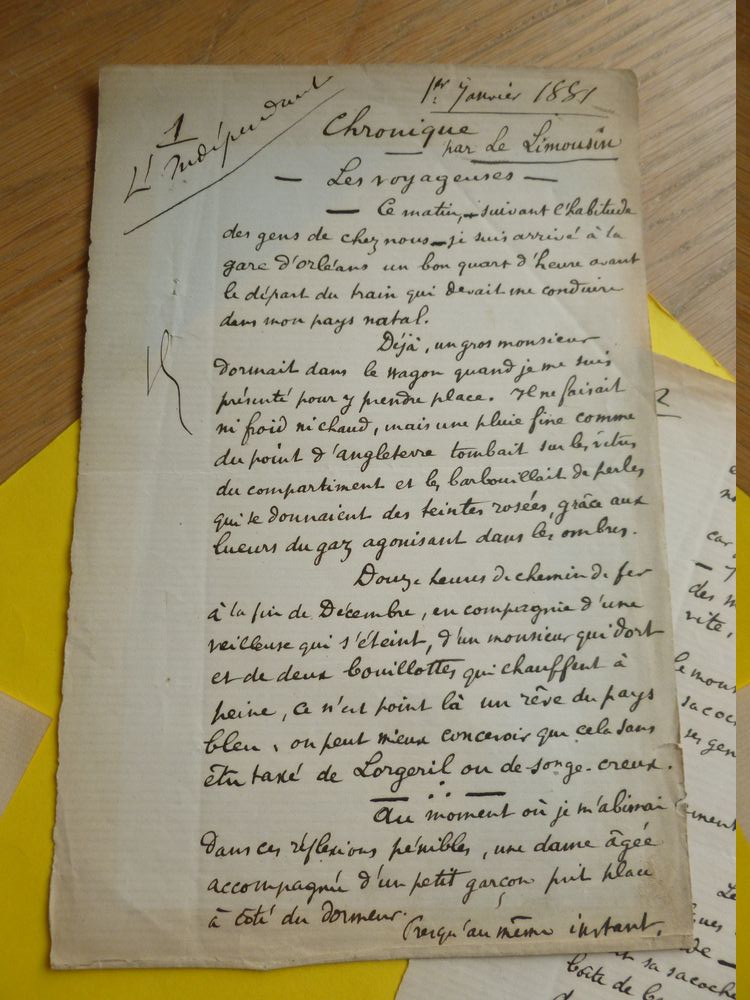 1
L'Indépendant
1er Janvier 1881
Chronique
par Le Limousin
— Les voyageuses —
— Ce matin, — suivant l'habitude
des gens de chez nous — je suis arrivé à la
gare d'Orléans un bon quart d'heure avant
le départ du train qui devait me conduire
dans mon pays natal.
Déjà, un gros monsieur
dormait dans le wagon quand je me suis
présenté pour y prendre place. Il ne faisait
ni froid ni chaud, mais une pluie fine comme
du point d'angleterre tombait sur les vitres
du compartiment et les barbouillait de perles
qui se donnaient des teintes rosées, grâce aux
lueurs du gaz agonisant dans les ombres.
Douze heures de chemin de fer
à la fin de Décembre, en compagnie d'une
veilleuse qui s'éteint, d'un monsieur qui dort
et de deux bouillottes qui chauffent à
peine, ce n'est point là un rêve du pays
bleu, on peut mieux concevoir que cela sans
être taxé de Lorgeril ou de songe-creux.
Au moment où je m'abimai
dans ces réflexions pénibles, une dame âgée
accompagnée d'un petit garçon prit place
à côté du dormeur.
Presqu'au même instant,
2
car
des
vite,
le
sa sacoche
boîte de